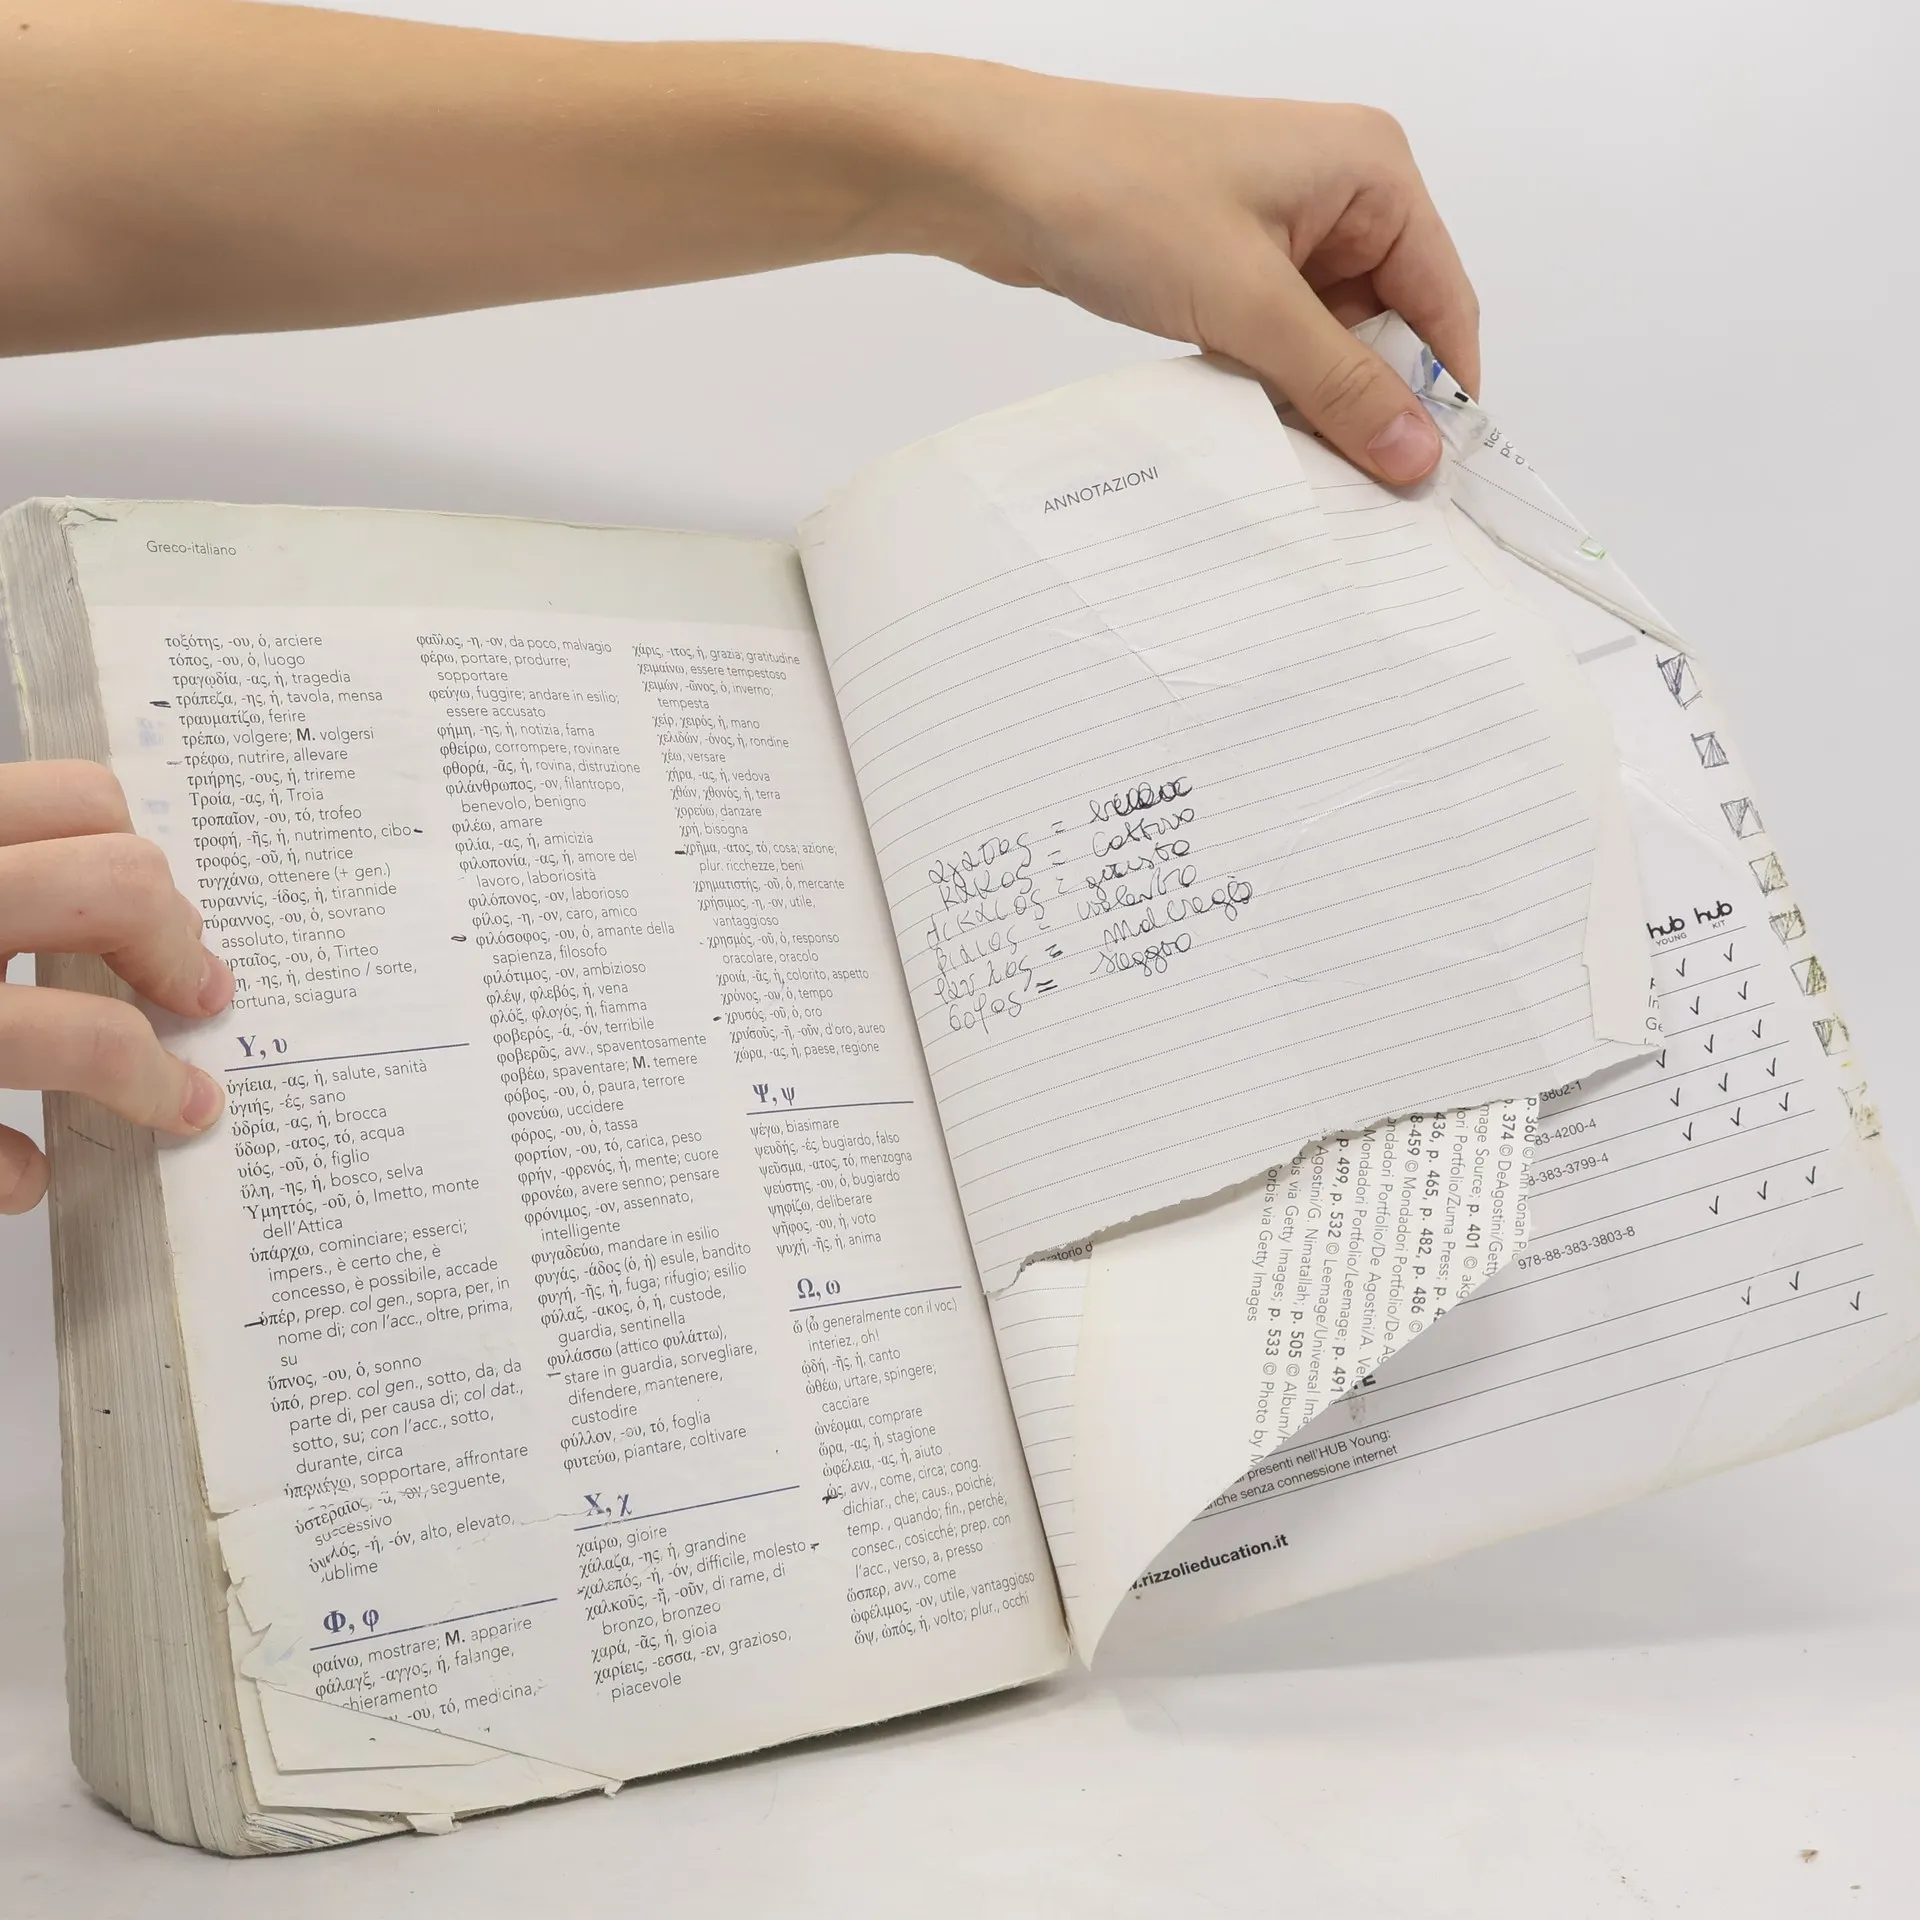 Greco-italiano
τοξότης, -ου, ὁ, arciere
τόπος, -ου, ὁ, luogo
τραγῳδία, -ας, ἡ, tragedia
τράπεζα, -ης, ἡ, tavola, mensa
τραυματίζω, ferire
τρέπω, volgere; M. volgersi
τρέφω, nutrire, allevare
τριήρης, -ους, ἡ, trireme
Τροία, -ας, ἡ, Troia
τροπαῖον, -ου, τό, trofeo
τροφή, -ῆς, ἡ, nutrimento, cibo
τροφός, -οῦ, ἡ, nutrice
τυγχάνω, ottenere (+ gen.)
τυραννίς, -ίδος, ἡ, tirannide
τύραννος, -ου, ὁ, sovrano
assoluto, tiranno
-ου, ὁ, Tirteo
-ης, ἡ, destino / sorte,
fortuna, sciagura
Υ, υ
ὑγίεια, -ας, ἡ, salute, sanità
ὑγιής, -ές, sano
ὑδρία, -ας, ἡ, brocca
ὕδωρ, -ατος, τό, acqua
υἱός, -οῦ, ὁ, figlio
ὕλη, -ης, ἡ, bosco, selva
Ὑμηττός, -οῦ, ὁ, Imetto, monte
dell'Attica
ὑπάρχω, cominciare; esserci;
impers., è certo che, è
concesso, è possibile, accade
ὑπέρ, prep. col gen., sopra, per, in
nome di; con l'acc., oltre, prima,
su
ὕπνος, -ου, ὁ, sonno
ὑπό, prep. col gen., sotto, da; da
parte di, per causa di; col dat.,
sotto, su; con l'acc., sotto,
durante, circa
sopportare, affrontare
ὑστεραῖος, -α, -ον, seguente,
successivo
-ή, -όν, alto, elevato,
ublime
Φ, φ
φαίνω, mostrare; M. apparire
φάλαγξ, -αγγος, ἡ, falange,
chieramento
-ου, τό, medicina,
φαῦλος, -η, -ον, da poco, malvagio
φέρω, portare, produrre;
sopportare
φεύγω, fuggire; andare in esilio;
essere accusato
φήμη, -ης, ἡ, notizia, fama
φθείρω, corrompere, rovinare
φθορά, -ᾶς, ἡ, rovina, distruzione
φιλάνθρωπος, -ον, filantropo,
benevolo, benigno
φιλέω, amare
φιλία, -ας, ἡ, amicizia
φιλοπονία, -ας, ἡ, amore del
lavoro, laboriosità
φιλόπονος, -ον, laborioso
φίλος, -η, -ον, caro, amico
φιλόσοφος, -ου, ὁ, amante della
sapienza, filosofo
φιλότιμος, -ον, ambizioso
φλέψ, φλεβός, ἡ, vena
φλόξ, φλογός, ἡ, fiamma
φοβερός, -ά, -όν, terribile
φοβερῶς, avv., spaventosamente
φοβέω, spaventare; M. temere
φόβος, -ου, ὁ, paura, terrore
φονεύω, uccidere
φόρος, -ου, ὁ, tassa
φορτίον, -ου, τό, carica, peso
φρήν, -φρενός, ἡ, mente; cuore
φρονέω, avere senno; pensare
φρόνιμος, -ον, assennato,
intelligente
φυγαδεύω, mandare in esilio
φυγάς, -άδος (ὁ, ἡ) esule, bandito
φυγή, -ῆς, ἡ, fuga; rifugio; esilio
φύλαξ, -ακος, ὁ, ἡ, custode,
guardia, sentinella
φυλάσσω (attico φυλάττω),
stare in guardia, sorvegliare,
difendere, mantenere,
custodire
φύλλον, -ου, τό, foglia
φυτεύω, piantare, coltivare
Χ, χ
χαίρω, gioire
χάλαζα, -ης, ἡ, grandine
χαλεπός, -ή, -όν, difficile, molesto
χαλκοῦς, -ῆ, -οῦν, di rame, di
bronzo, bronzeo
χαρά, -ᾶς, ἡ, gioia
χαρίεις, -εσσα, -εν, grazioso,
piacevole
χάρις, -ιτος, ἡ, grazia; gratitudine
χειμαίνω, essere tempestoso
χειμών, -ῶνος, ὁ, inverno;
tempesta
χείρ, χειρός, ἡ, mano
χελιδών, -όνος, ἡ, rondine
χέω, versare
χήρα, -ας, ἡ, vedova
χθών, χθονός, ἡ, terra
χορεύω, danzare
χρή, bisogna
χρῆμα, -ατος, τό, cosa; azione;
plur. ricchezze, beni
χρηματιστής, -οῦ, ὁ, mercante
χρήσιμος, -η, -ον, utile,
vantaggioso
χρησμός, -οῦ, ὁ, responso
oracolare, oracolo
χροιά, -ᾶς, ἡ, colorito, aspetto
χρόνος, -ου, ὁ, tempo
χρυσός, -οῦ, ὁ, oro
χρυσοῦς, -ῆ, -οῦν, d'oro, aureo
χώρα, -ας, ἡ, paese, regione
Ψ, ψ
ψέγω, biasimare
ψευδής, -ές, bugiardo, falso
ψεῦσμα, -ατος, τό, menzogna
ψεύστης, -ου, ὁ, bugiardo
ψηφίζω, deliberare
ψῆφος, -ου, ἡ, voto
ψυχή, -ῆς, ἡ, anima
Ω, ω
ὦ (ὦ generalmente con il voc.)
interiez., oh!
ᾠδή, -ῆς, ἡ, canto
ὠθέω, urtare, spingere;
cacciare
ὠνέομαι, comprare
ὥρα, -ας, ἡ, stagione
ὠφέλεια, -ας, ἡ, aiuto
ὡς, avv., come, circa; cong.
dichiar., che; caus., poiché;
temp., quando; fin., perché;
consec., cosicché; prep. con
l'acc., verso, a, presso
ὥσπερ, avv., come
ὠφέλιμος, -ον, utile, vantaggioso
ὤψ, ὠπός, ἡ, volto; plur., occhi
ANNOTAZIONI
=
κακος = cattivo
= giusto
βιαιος = violento
= malvagio
σοφος = saggio
hub hub
YOUNG KIT
3802-1
83-4200-4
8-383-3799-4
978-88-383-3803-8
p. 360 © Ann Ronan Pi
p. 374 © DeAgostini/Getty
mage Source; p. 401 © akg
ori Portfolio/Zuma Press; p. 4
436, p. 465, p. 482, p. 486 ©
8-459 © Mondadori Portfolio/De A
ondadori Portfolio/De Agostini/A.
Mondadori Portfolio/Leemage; p. 491
p. 499, p. 532 © Leemage/Universal Ima
Agostini/G. Nimatallah; p. 505 © Album/
bis via Getty Images; p. 533 © Photo by
orbis via Getty Images
presenti nell'HUB Young:
nche senza connessione internet
.rizzolieducation.it